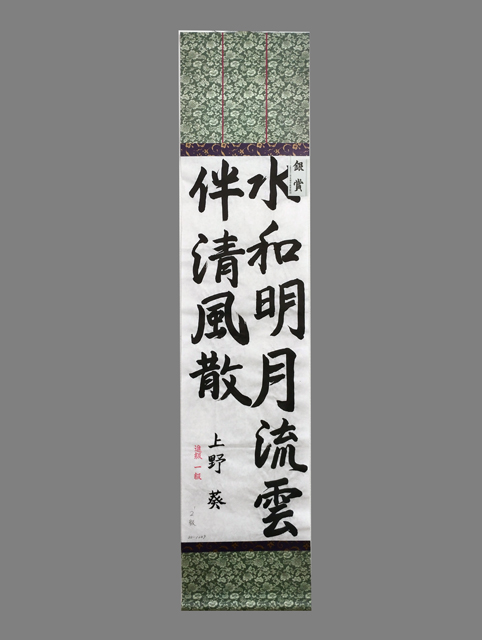 銀賞
水和明月流雲
伴清風散
上野 葵
進級 一級
2級